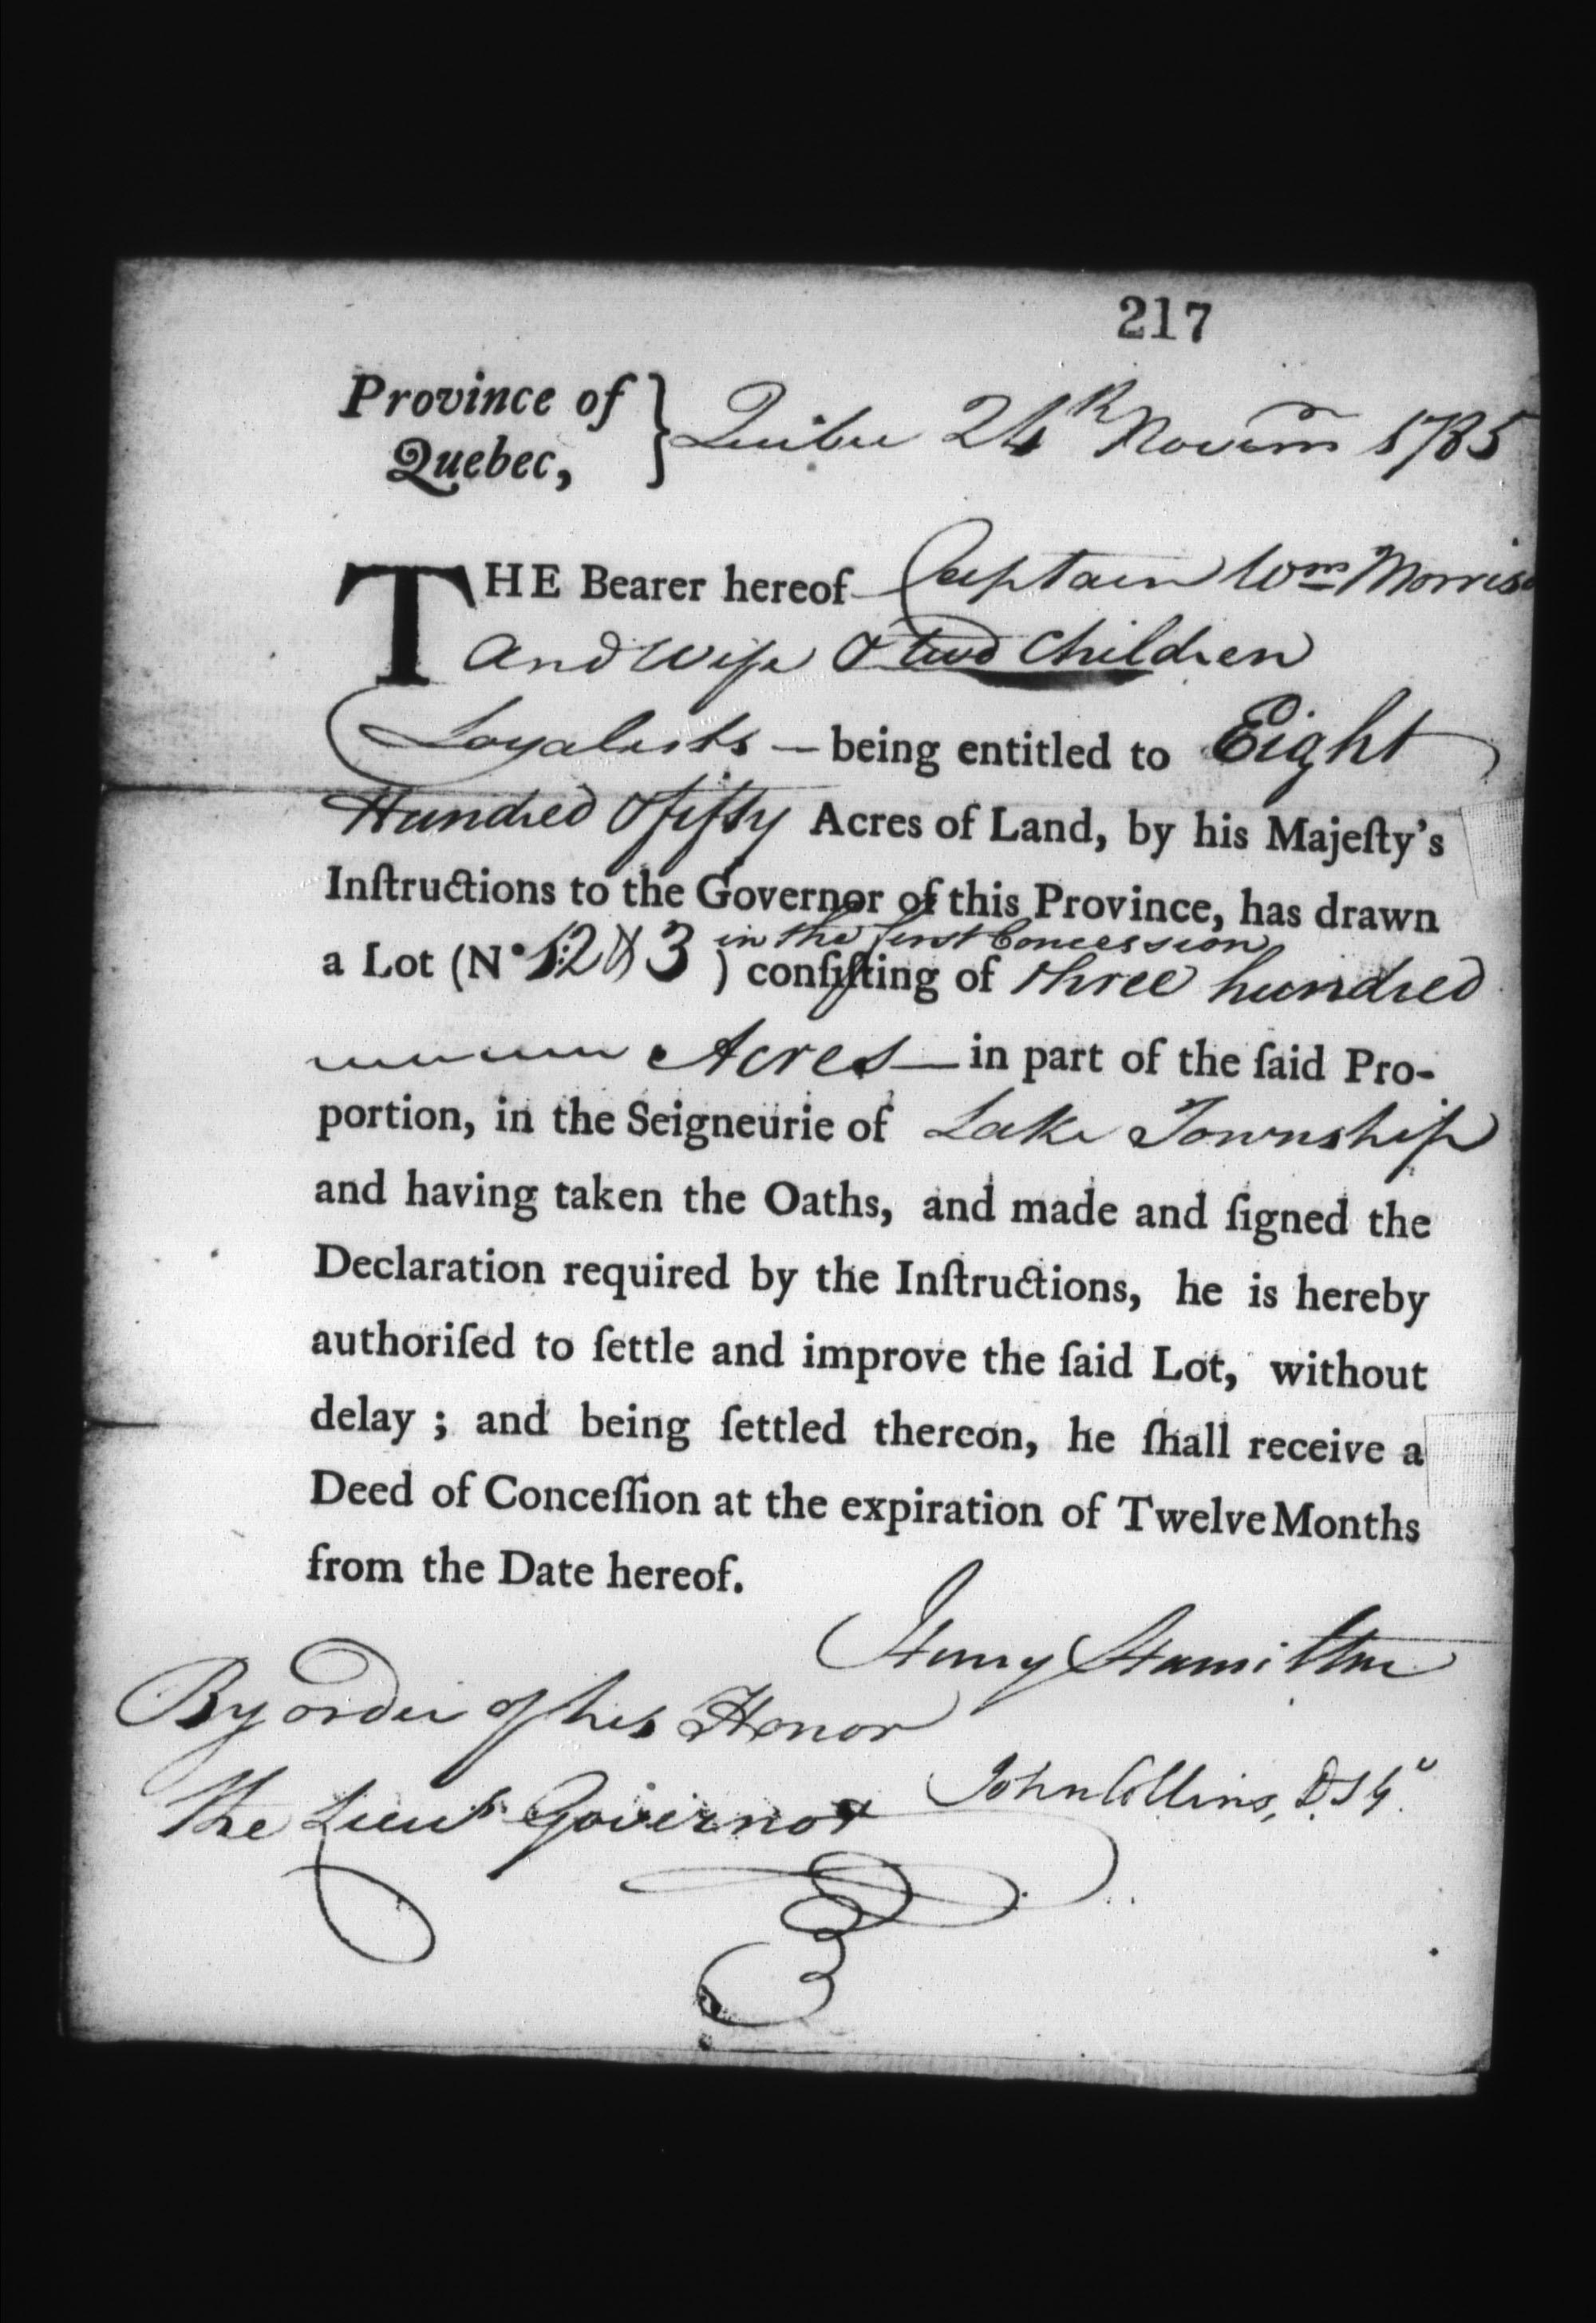 217
Province of } Quebec 24th Novem 1785
Quebec,
THE Bearer hereof Captain Wm Morriso
and Wife & two Children
Loyalists — being entitled to Eight
Hundred & fifty Acres of Land, by his Majeſty's
Inſtructions to the Governor of this Province, has drawn
in the first Concession
a Lot (No 1:2 & 3 ) conſiſting of three hundred
Acres — in part of the ſaid Pro-
portion, in the Seigneurie of Lake Township
and having taken the Oaths, and made and ſigned the
Declaration required by the Inſtructions, he is hereby
authoriſed to ſettle and improve the ſaid Lot, without
delay ; and being ſettled thereon, he ſhall receive a
Deed of Conceſſion at the expiration of Twelve Months
from the Date hereof.
Henry Hamilton
By order of his Honor
The Lieut Governor John Collins, D.S.G.